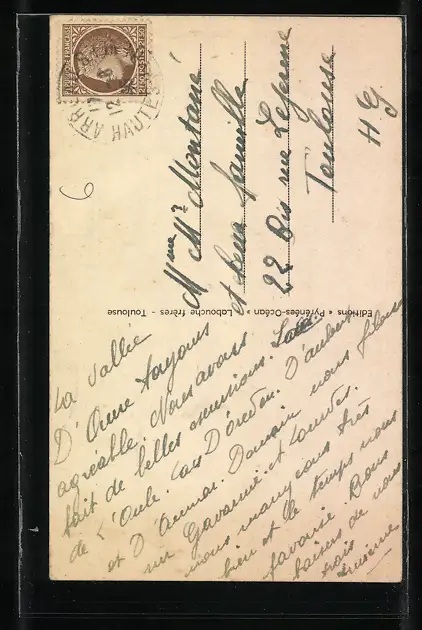 La vallée
D'Oure toujours
agréable. Nous avons
fait de belles excursions. Lacs
de L'Oule. Lacs D'Orédon. D'aubert
et D'Aumar. Demain nous filons
sur Gavarnie et Lourdes.
nous mangeons très
bien et le temps nous
favorise. Bons
baisers de nous
trois
Mme Mr Montané
et leur famille
22 Bis rue Lejeune
Toulouse
H G
Editions « Pyrénées-Océan » Labouche frères - Toulouse
HAUTES
6